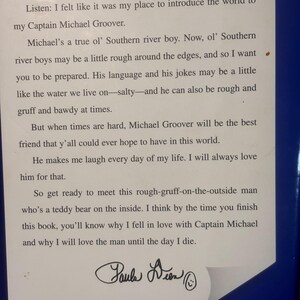 Listen: I felt like it was my place to introduce the world to
my Captain Michael Groover.
Michael's a true ol' Southern river boy. Now, ol' Southern
river boys may be a little rough around the edges, and so I want
you to be prepared. His language and his jokes may be a little
like the water we live on—salty—and he can also be rough and
gruff and bawdy at times.
But when times are hard, Michael Groover will be the best
friend that y'all could ever hope to have in this world.
He makes me laugh every day of my life. I will always love
him for that.
So get ready to meet this rough-gruff-on-the-outside man
who's a teddy bear on the inside. I think by the time you finish
this book, you'll know why I fell in love with Captain Michael
and why I will love the man until the day I die.
Paula Deen